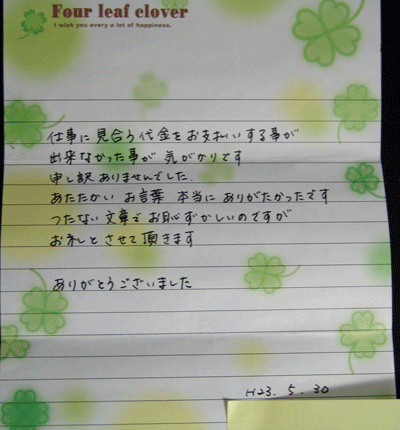 Four leaf clover
I wish you every a lot of happiness.
仕事に見合う代金をお支払いする事が
出来なかった事が 気がかりです
申し訳ありませんでした.
あたたかい お言葉 本当に ありがたかったです
つたない文章で お恥ずかしいのですが
お礼とさせて頂きます
ありがとうございました
H23. 5. 30